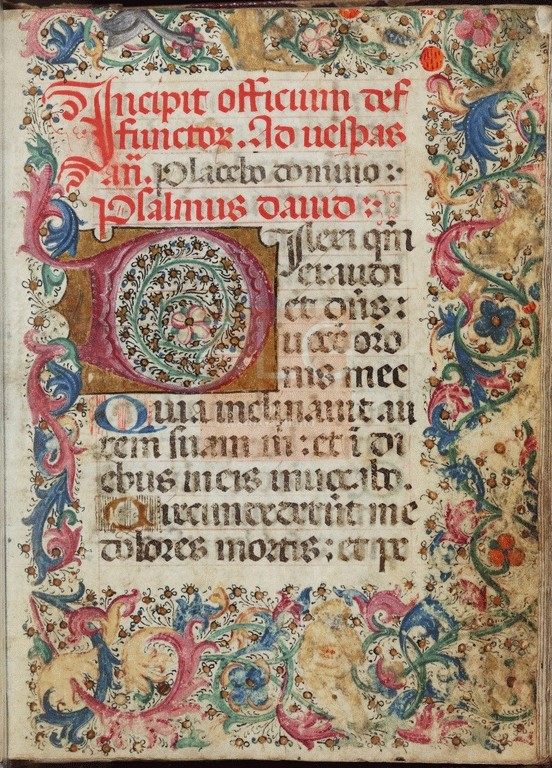 Incipit officium def
functoꝝ. Ad uesperas
añ. Placebo domino :
Psalmus dauid :
Dilexi qm̃
exaudi
et dñs :
uocē orõ
nis mee
Quia inclinauit au
rem suam m̃ : et ĩ di
ebus meis inuocabo.
Circumdederũt me
dolores mortis : et pe